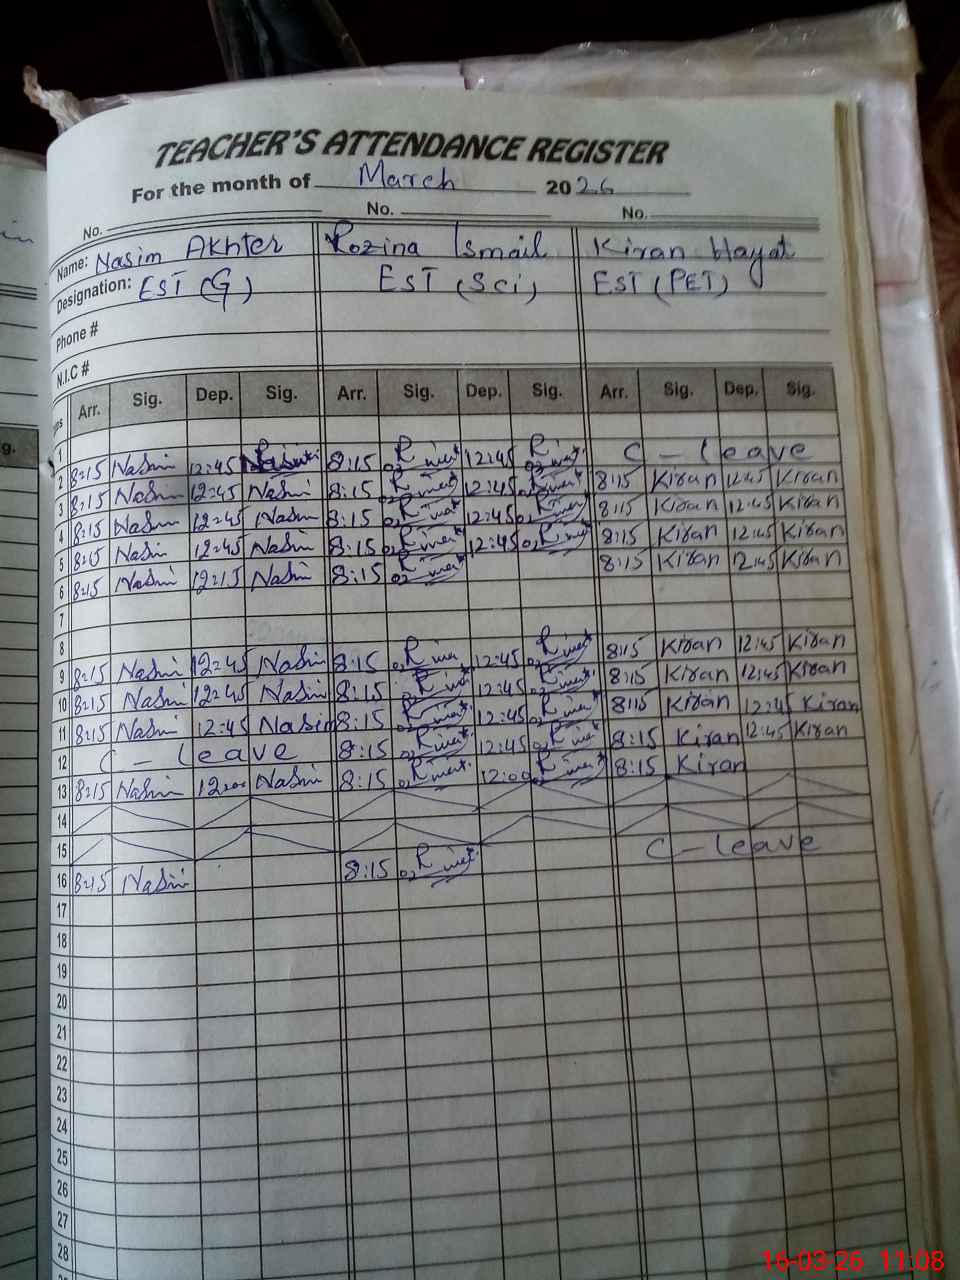 TEACHER'S ATTENDANCE REGISTER
For the month of March 2026
No. No. No.
Name: Nasim Akhter Rozina Ismail Kiran Hayat
Designation: EST (G) EST (Sci) EST (PET)
Phone #
N.I.C #
Arr. Sig. Dep. Sig. Arr. Sig. Dep. Sig. Arr. Sig. Dep. Sig.
1
2 8:15 Nasim 12:45 8:15 12:45 C - leave
3 8:15 Nasim 12:45 Nasim 8:15 12:45 8:15 Kiran 12:45 Kiran
4 8:15 Nasim 12:45 Nasim 8:15 12:45 8:15 Kiran 12:45 Kiran
5 8:15 Nasim 12:45 Nasim 8:15 12:45 8:15 Kiran 12:45 Kiran
6 8:15 Nasim 12:15 Nasim 8:15 8:15 Kiran 12:45 Kiran
7
8
9 8:15 Nasim 12:45 Nasim 8:15 12:45 8:15 Kiran 12:45 Kiran
10 8:15 Nasim 12:45 Nasim 8:15 12:45 8:15 Kiran 12:45 Kiran
11 8:15 Nasim 12:45 Nasim 8:15 12:45 8:15 Kiran 12:45 Kiran
12 C - leave 8:15 12:45 8:15 Kiran 12:45 Kiran
13 8:15 Nasim 12:00 Nasim 8:15 12:00 8:15 Kiran
14
15
16 8:15 Nasim 8:15 C - leave
17
18
19
20
21
22
23
24
25
26
27
28
16-03-26 11:08